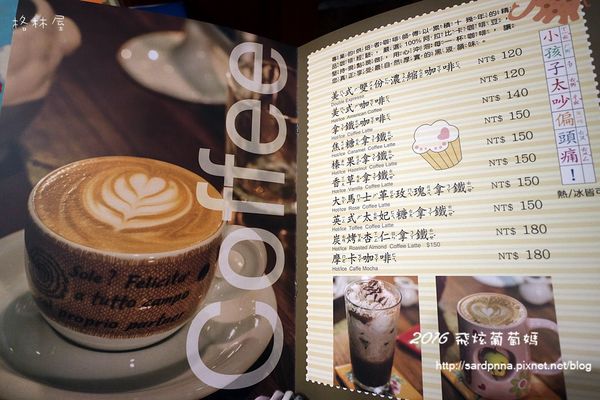 格林屋
Coffee
NT$ 120
美式雙份濃縮咖啡
Double Espresso
NT$ 120
美式咖啡
Hot/Ice American Coffee
NT$ 140
拿鐵咖啡
Hot/Ice Coffee Latte
NT$ 150
焦糖拿鐵
Hot/Ice Caramel Coffee Latte
NT$ 150
榛果拿鐵
Hot/Ice Hazelnut Coffee Latte
NT$ 150
香草拿鐵
Hot/Ice Vanilla Coffee Latte
NT$ 150
大馬士革玫瑰拿鐵
Hot/Ice Rose Coffee Latte
NT$ 150
英式太妃糖拿鐵
Hot/Ice Toffee Coffee Latte
NT$ 180
炭烤杏仁拿鐵
Hot/Ice Roasted Almond Coffee Latte $150
NT$ 180
摩卡咖啡
Hot/Ice Caffe Mocha
小孩子太吵偏頭痛!
熱/冰皆可
Felicita'
a tutto campo
proprio
2016 飛炫葡萄媽
http://sardpnna.pixnet.net/blog